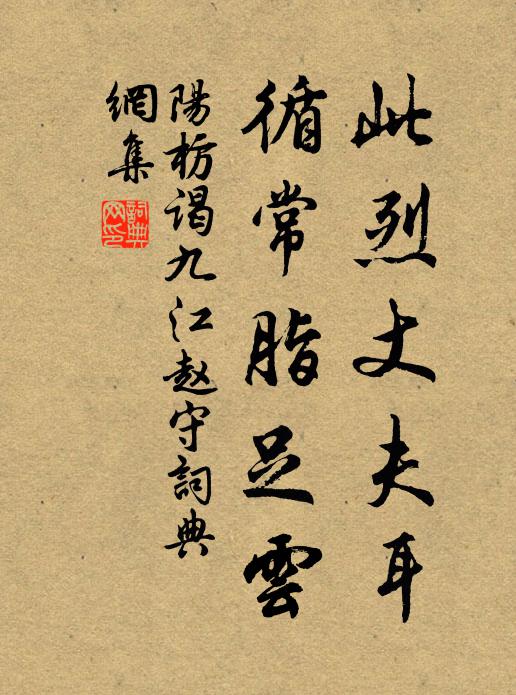 此烈丈夫耳
循常脂足雲
陽枋謁九江趙守詞典
網集
詞典
网印